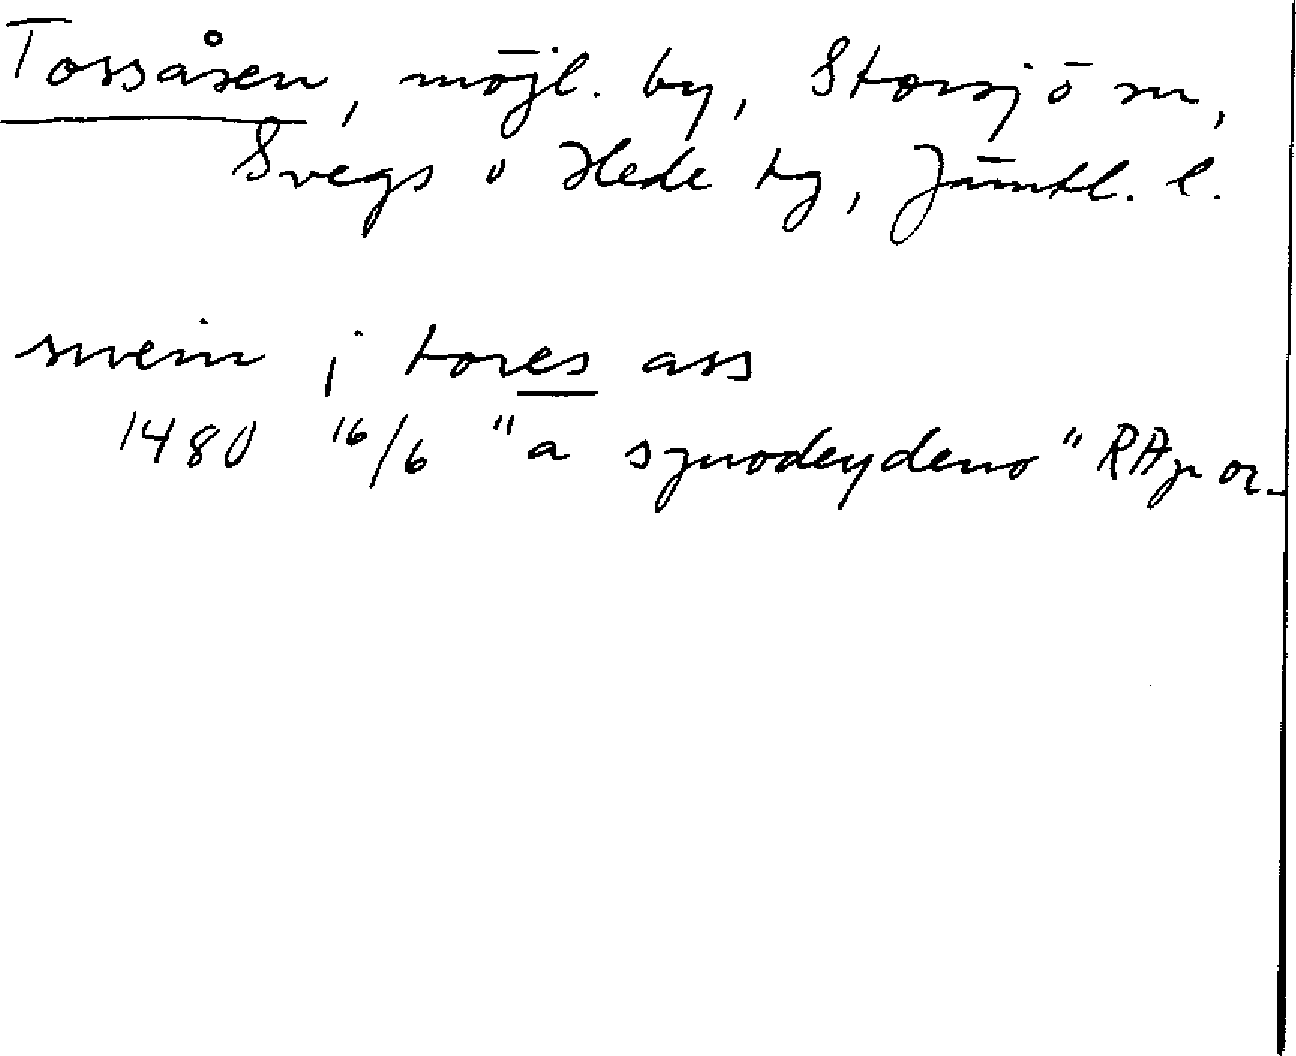 Torsåsen, möjl. by, Storsjö sn,
Svegs o Hede tg, Jämtl. l.
swein j tores ass
1480 16/6 "a synodeydeno" RAp or.